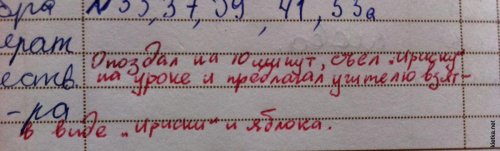 бра № 35, 37, 39, 41, 53а
ерат
Опоздал на 10 минут, съел „Ириску"
еств. на уроке и предлагал учителю взят-
-ра
в виде „Ириски" и яблока.